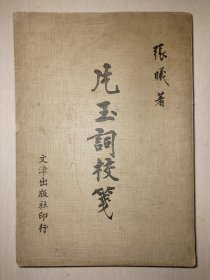 張曦著
片玉詞校箋
文津出版社印行